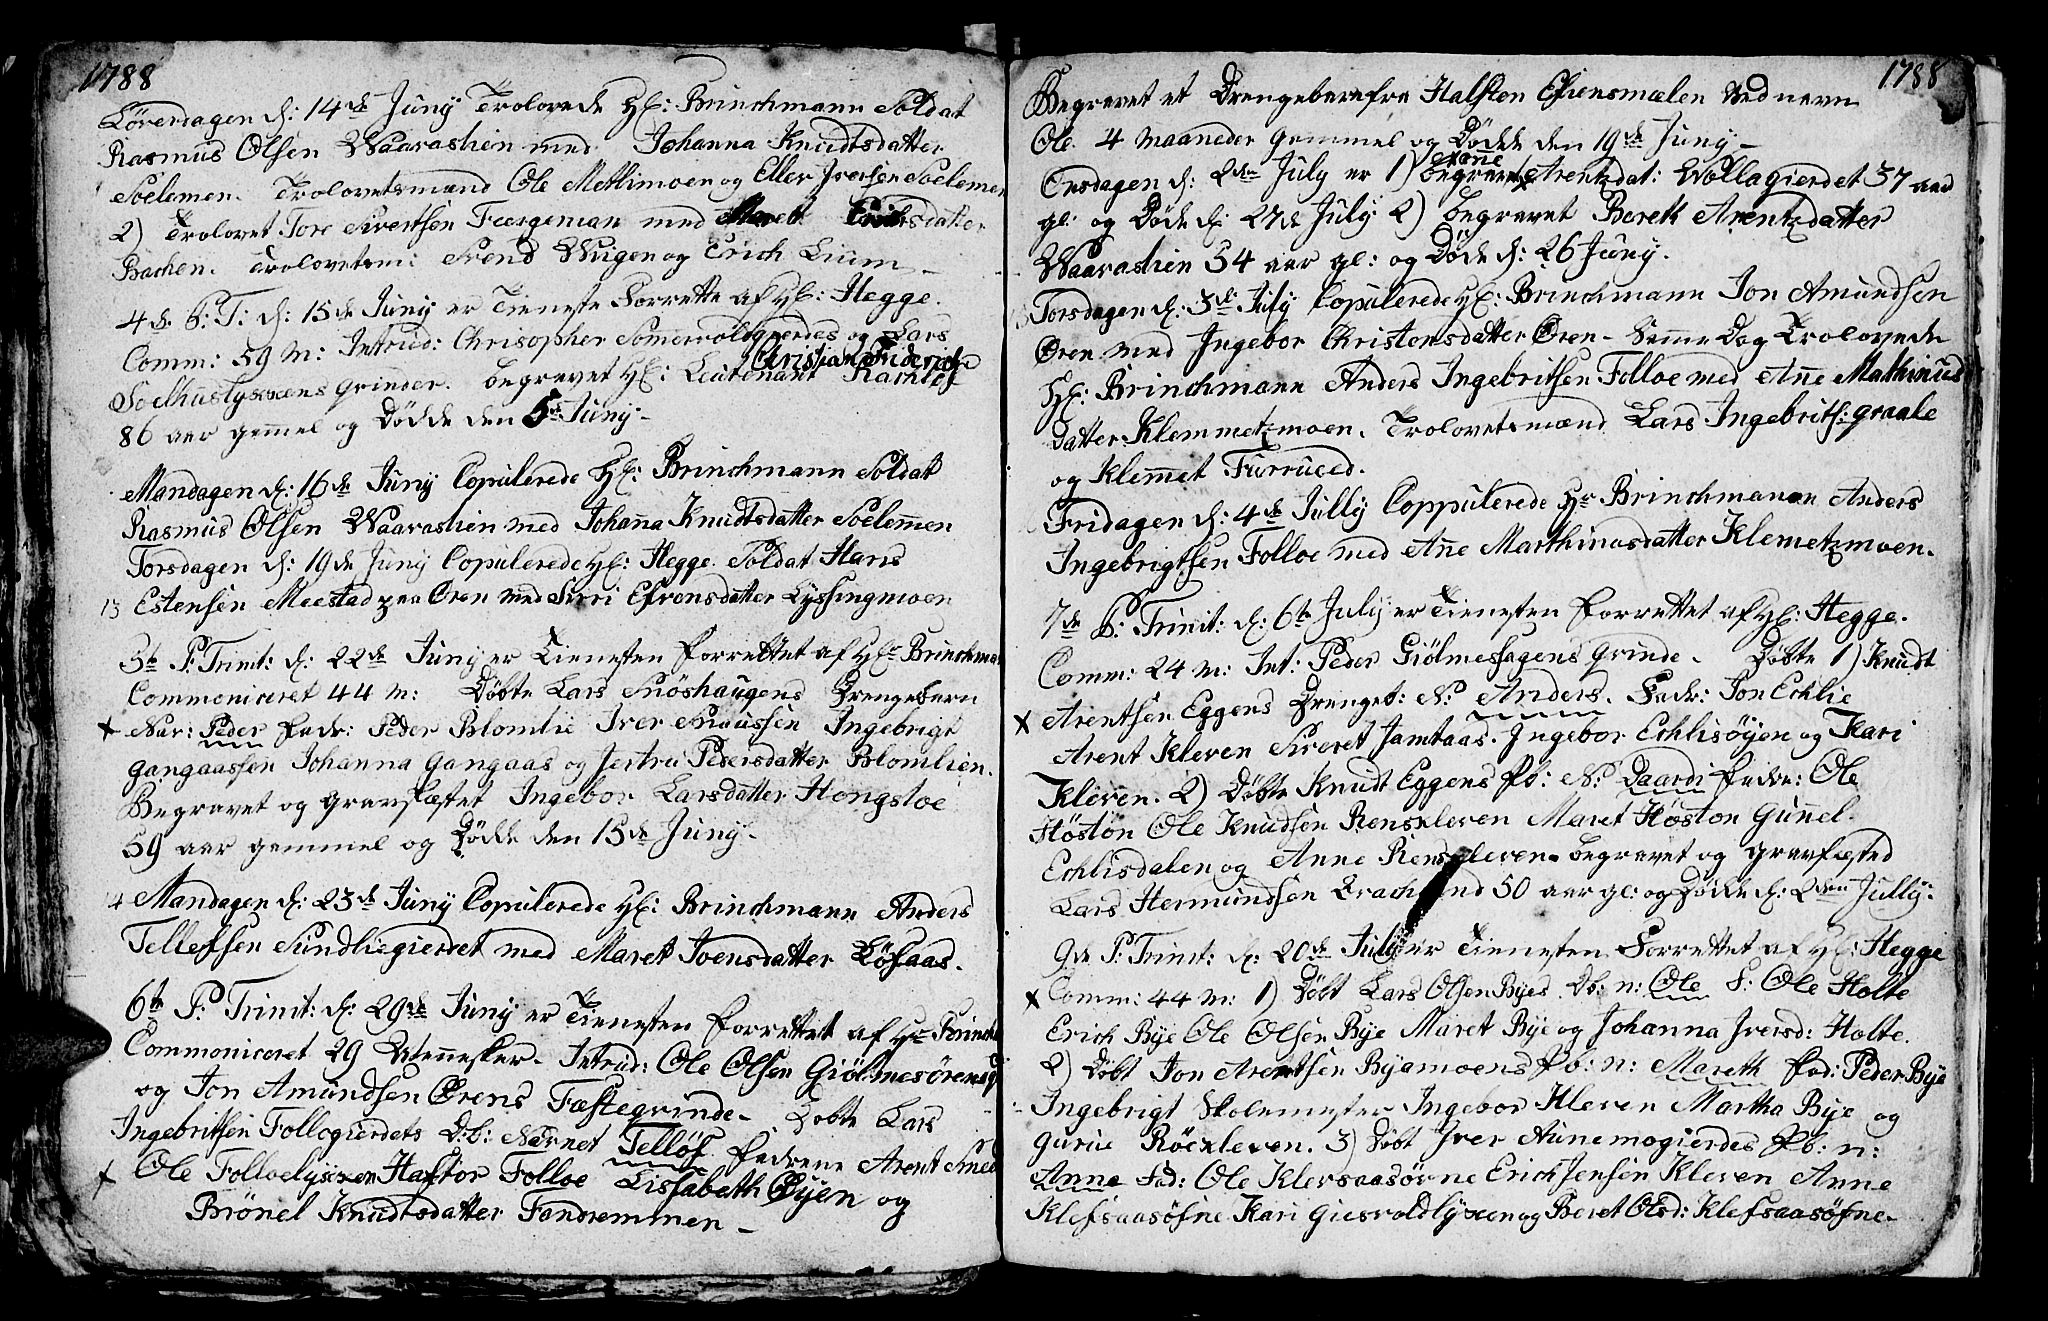 1788
Löverdagen d: 14de Juny Trolovede Hr: Brinchmann Soldat
Rasmus Olsen Waaraslien med Johanna Knudtsdatter
Soelemen. Trolovetsmænd Ole Methimoen og Eller Iversen Soelemen
2) Trolovet Tore Sivertsen Feergeman med Maret Erichsdatter
Bachen. Trolovetsm: Svend Wiigen og Erich Lium
4de P: T: d: 15de Juny er Tieneste Forrette af Hr: Hegge.
Comm: 59 m: Introd: Chrisopher Somervoldgierdes og Lars
Christian Friderich
Soelhuslyxens grinder. begravet Hr: Lieutenant
86 aar gemel og Dødde den 5te Juny.
Mandagen d: 16de Juny Copulerede Hr: Brinchmann Soldat
Rasmus Olsen Waaraslien med Johanna Knudtsdatter Soelemen
Torsdagen d: 19de Juny Copulerede Hr: Hegge. Soldat Hans
13 Estensen Meestad paa Ören med Siri Estensdatter Lyssingmoen
5te P: Trinit: d: 22de Juny er Tienesten forrettet af Hr Brinchman
Commoniceret 44 m: Döbte Lars Snöshaugens Drengebarn
x Nav: Peder fadr: Peder Blomlie Iver Snaussen Ingebrigt
gangaassen Johanna gangaas og Jertru Pedersdatter Blomlien.
Begravet og gravfæstet Ingebor Larsdatter Hongsloe
59 aar gammel og Dødde den 15de Juny.
14 Mandagen d: 23de Juny Copulerede Hr: Brinchmann Anders
Tellefsen Sundliegierdet med Maret Joensdatter Löfaas.
6te P: Trinit: d: 29de Juny er Tienesten forrettet af Hr Brinchm
Commoniceret 29 Mennesker. Introd: Ole Olsen Giölmesörens
og Jon Amundsen Örens Fæstegrinde. Döbte Lars
Ingebritsen Follogierdets D:b: Navnet Tellöf fadrene Arent Smed
x Ole Folloelyxen Hastor Folloe Lissabeth Öyen og
Brönel Knudtsdatter Fandremmen
1788
Begravet et Drengebarn fra Halsten Estensmælen ved navn
Ole 4 maaneder gammel og Dødde den 19de Juny
ane
Onsdagen d: 2den July er 1) begravet Arentzdat: Wollagierdet 57 aar
gl: og Døde d: 27de July 2) begravet Bereth Arentzdatter
Waaraslien 54 aar gl: og Døde d: 26 Juny.
Torsdagen d: 3de July Copulerede Hr: Brinchmann Jon Amundsen
Ören med Ingebor Christensdatter Ören. Samme Dag Trolovede
Hr: Brinchmann Anders Ingebritsen Folloe med Ane Mathinus
datter Klemmetzmoen. Trolovetsmænd Lars Ingebrits: graale
og Klemet Furrued.
Fridagen d: 4de Jully Coppulerede Hr Brinchmann Anders
Ingebrigtsen Folloe med Ane Marthinusdatter Klemetzmoen.
7de P: Trinit: d: 6te July er Tienesten forrettet af Hr: Hegge.
Comm: 24 m: Int: Peder Giölmessagens grinde. Döbte 1) Knudt
x Arentsen Eggens Drengeb: N: Anders. Fadr: Jon Echlie
Arent Kleven Siveret Jamtaas. Ingebor Echlisöyen og Kari
Kleven. 2) Döbte Knudt Eggens Pb: N: Daardi fadre: Ole
Höston Ole Knudsen Renskleven Maret Höston Gunel
Echlisdalen og Anne Renskleven. begravet og gravfæsted
Lars Hermundsen 50 aar gl: og Dödde d: 2den Jully:
9de P: Trinit: d: 20de July er Tienesten Forrettet af Hr: Hegge
x Comm: 44 m: 1) Döbt Lars Olsen Byes Db: n: Ole F: Ole Holte
Erich Bye Ole Olsen Bye Maret Bye og Johanna Iversd: Holte.
2) Döbt Jon Arentsen Byamoens Pb: n: Mareth fad: Peder Bye
Ingebrigt Skolemester Ingebor Kleven Martha Bye og
Gurue Röexleven. 3) Döbt Iver Aunemogierdes Pb: n:
Anne Fad: Ole Klefsaasörne Erich Jensen Kleven Anne
Klefsaasöfne Kari Giesvoldlyxen og Beret Olsd: Klefsaasöfne.